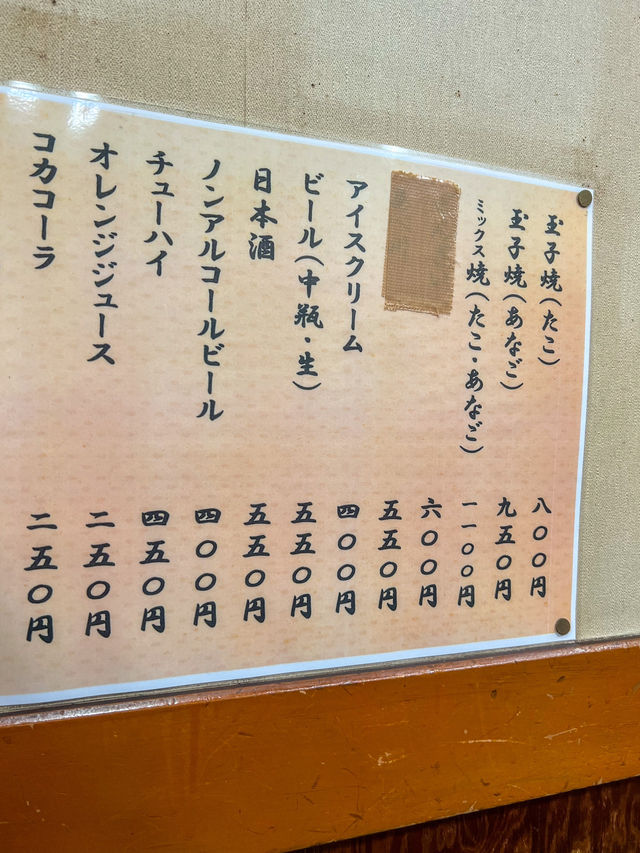 玉子焼(たこ) 八〇〇円
玉子焼(あなご) 九五〇円
ミックス焼(たこ・あなご) 一一〇〇円
六〇〇円
五五〇円
アイスクリーム 四〇〇円
ビール(中瓶・生) 五五〇円
日本酒 五五〇円
ノンアルコールビール 四〇〇円
チューハイ 四五〇円
オレンジジュース 二五〇円
コカコーラ 二五〇円